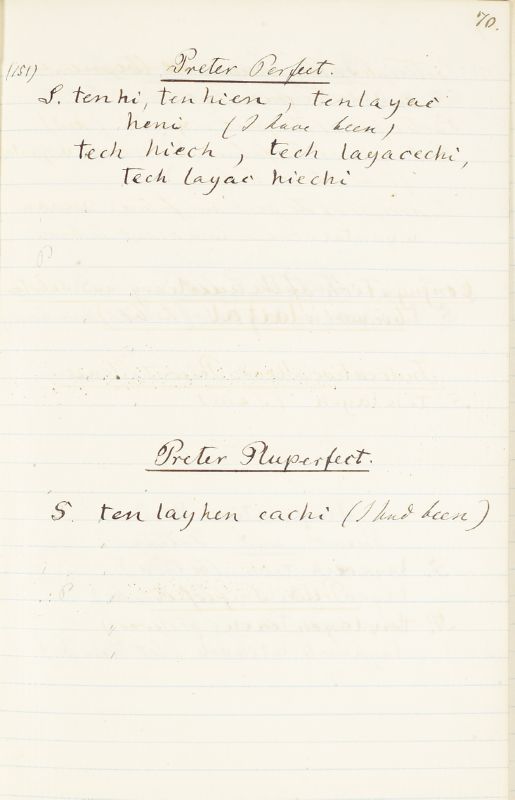 70.
Preter Perfect.
(151)
S. tenhi, tenhien, tenlayac
heni (I have been)
tech hiech, tech layacechi,
tech layac hiechi
P
Preter Pluperfect.
S. ten layhen cachi (I had been)